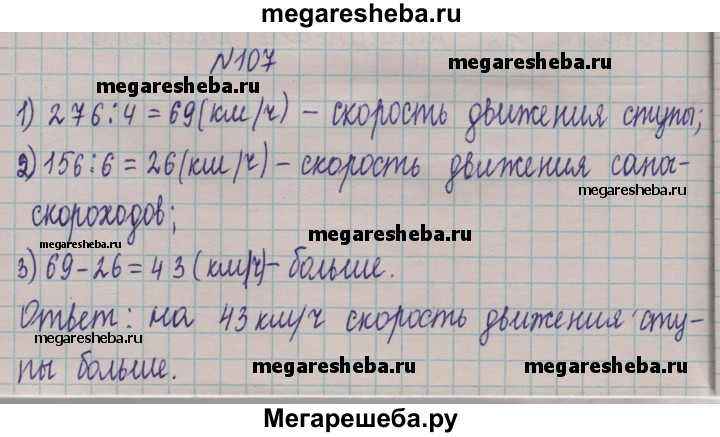 megaresheba.ru
N107
megaresheba.ru
megaresheba.ru
1) 276:4=69(км/ч) – скорость движения ступы;
megaresheba.ru
2) 156:6=26(км/ч) – скорость движения сапо-
megaresheba.ru
скороходов;
megaresheba.ru
megaresheba.ru
3) 69-26=43(км/ч)– больше.
megaresheba.ru
Ответ: на 43 км/ч скорость движения сту-
megaresheba.ru
пы больше.
megaresheba.ru
megaresheba.ru
Мегарешеба.ру